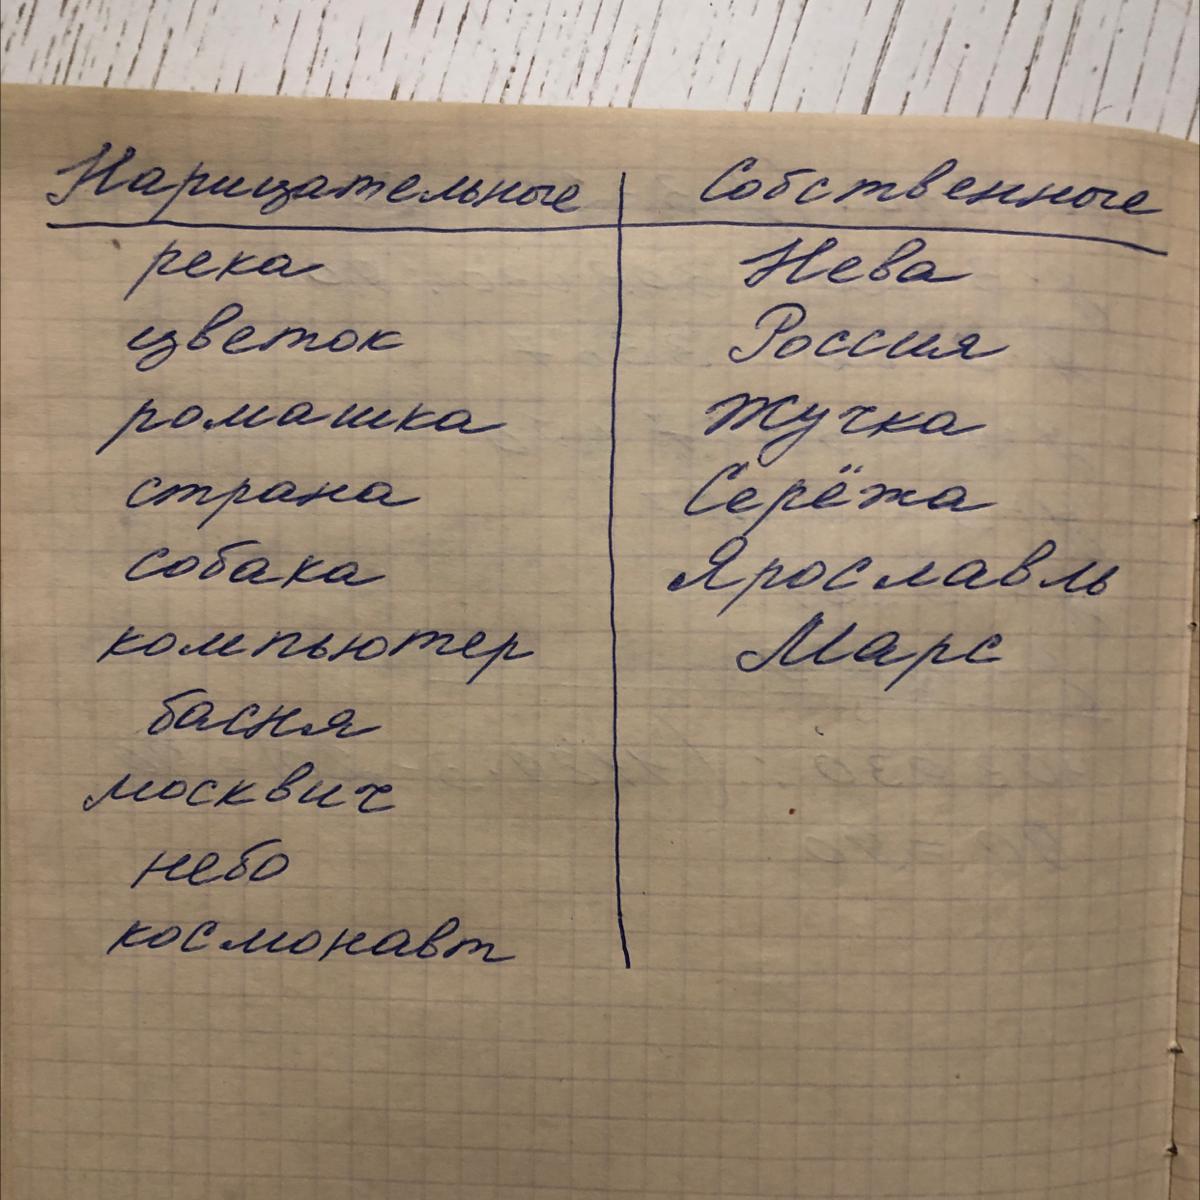 Нарицательные Собственные
река Нева
цветок Россия
ромашка Жучка
страна Серёжа
собака Ярославль
компьютер Марс
басня
москвич
небо
космонавт